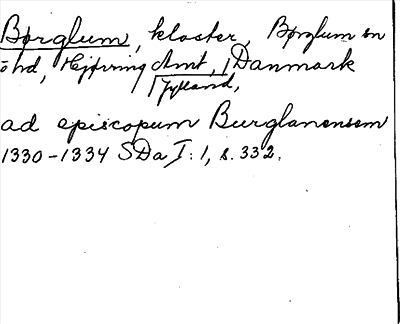 Børglum, kloster, Børglum sn
o hd, Hjørring Amt, Danmark
Jylland,
ad episcopum Burglanensem
1330-1334 SDa I:1, s. 332.